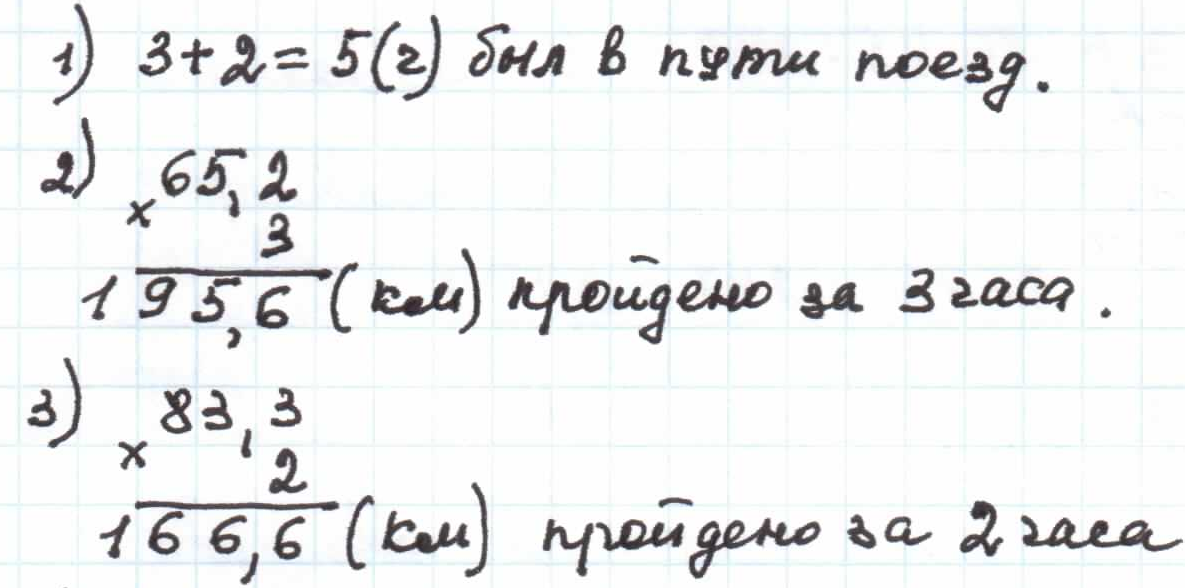 1) 3+2=5(г) был в пути поезд.
2) × 65,2
3
195,6 (км) пройдено за 3 часа.
3) × 83,3
2
166,6 (км) пройдено за 2 часа